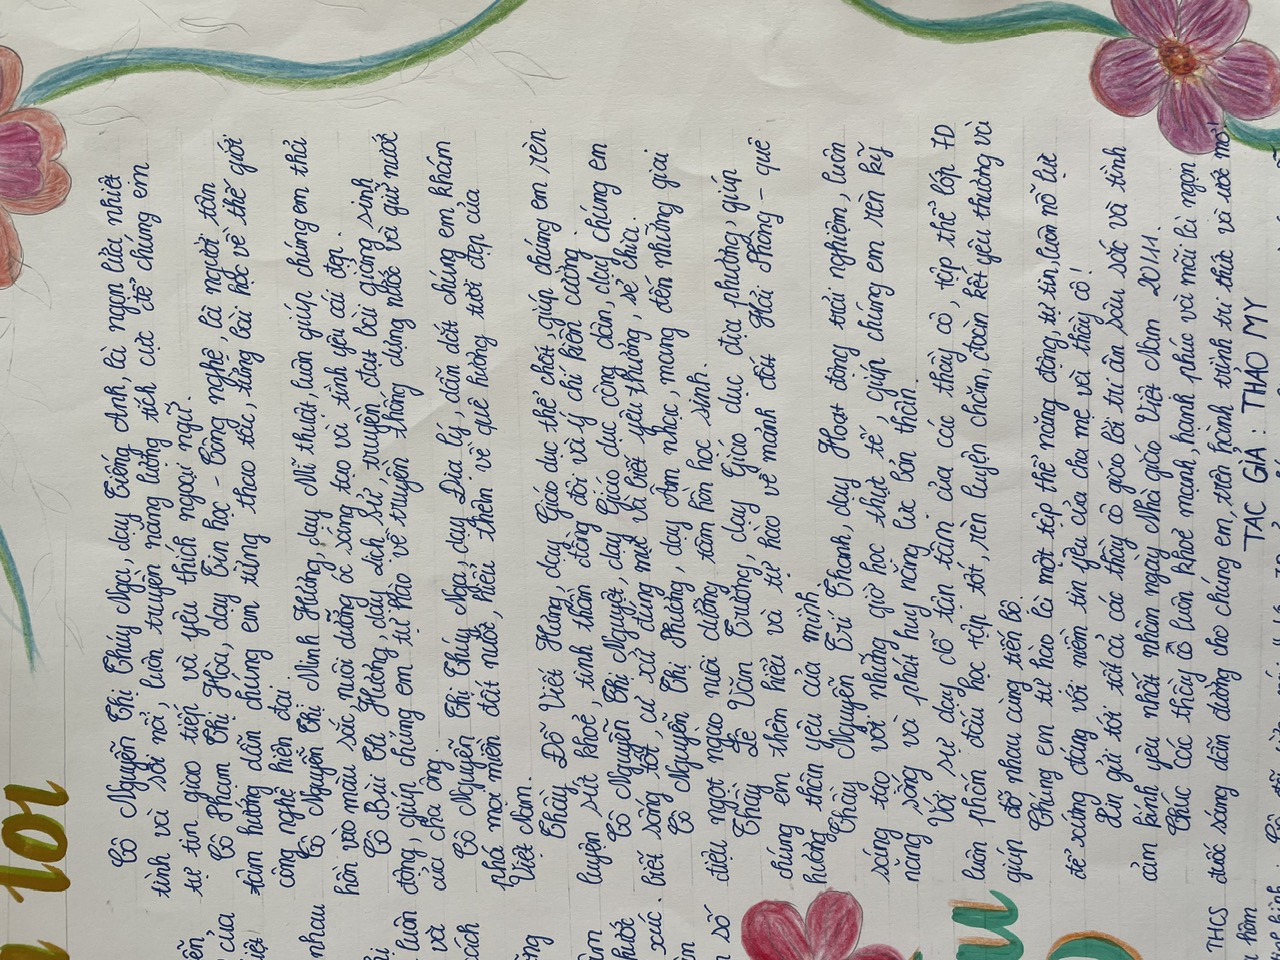 Cô Nguyễn Thị Thúy Nga, dạy Tiếng Anh, là ngọn lửa nhiệt
tình và sôi nổi, luôn truyền năng lượng tích cực để chúng em
tự tin giao tiếp và yêu thích ngoại ngữ.
Cô Phạm Thị Hòa, dạy Tin học - Công nghệ, là người tận
tâm hướng dẫn chúng em từng thao tác, từng bài học về thế giới
công nghệ hiện đại.
Cô Nguyễn Thị Minh Hường, dạy Mĩ thuật, luôn giúp chúng em thả
hồn vào màu sắc, nuôi dưỡng óc sáng tạo và tình yêu cái đẹp.
Cô Bùi Thị Hương, dạy Lịch sử, truyền đạt bài giảng sinh
động, giúp chúng em tự hào về truyền thống dựng nước và giữ nước
của cha ông.
Cô Nguyễn Thị Thúy Nga, dạy Địa lý, dẫn dắt chúng em khám
phá mọi miền đất nước, hiểu thêm về quê hương tươi đẹp của
Việt Nam.
Thầy Đỗ Viết Hùng, dạy Giáo dục thể chất, giúp chúng em rèn
luyện sức khoẻ, tinh thần đồng đội và ý chí kiên cường.
Cô Nguyễn Thị Nguyệt, dạy Giáo dục công dân, dạy chúng em
biết sống tốt, cư xử đúng mực và biết yêu thương, sẻ chia.
Cô Nguyễn Thị Phương, dạy Âm nhạc, mang đến những giai
điệu ngọt ngào nuôi dưỡng tâm hồn học sinh.
Thầy Lê Văn Trường, dạy Giáo dục địa phương, giúp
chúng em thêm hiểu và tự hào về mảnh đất Hải Phòng - quê
hương thân yêu của mình.
Thầy Nguyễn Trí Thanh, dạy Hoạt động trải nghiệm, luôn
sáng tạo với những giờ học thực tế, giúp chúng em rèn kỹ
năng sống và phát huy năng lực bản thân.
Với sự dạy dỗ tận tâm của các thầy cô, tập thể lớp 7D
luôn phấn đấu học tập tốt, rèn luyện chăm, đoàn kết yêu thương và
giúp đỡ nhau cùng tiến bộ.
Chúng em tự hào là một tập thể năng động, tự tin, luôn nỗ lực
để xứng đáng với niềm tin yêu của cha mẹ và thầy cô!
Xin gửi tới tất cả các thầy cô giáo lời tri ân sâu sắc và tình
cảm kính yêu nhất nhân ngày Nhà giáo Việt Nam 20/11.
Chúc các thầy cô luôn khoẻ mạnh, hạnh phúc và mãi là ngọn
đuốc sáng dẫn đường cho chúng em trên hành trình tri thức và ước mơ!
TÁC GIẢ: THẢO MY
THCS